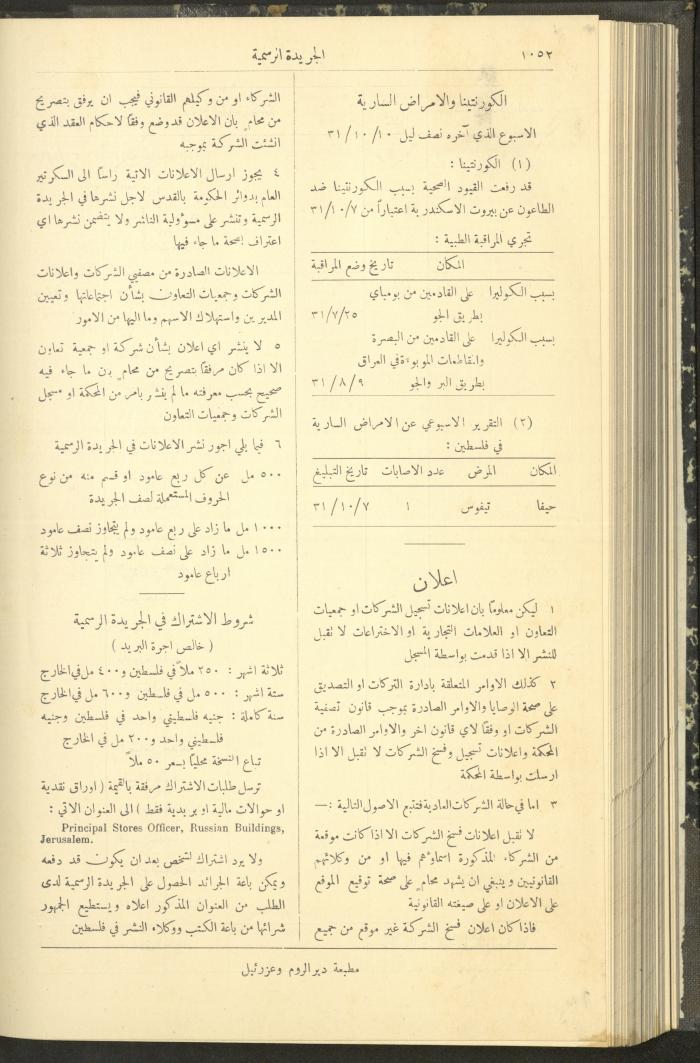 ١٠٥٢
الجريدة الرسمية
الكورنتينا والامراض السارية
الاسبوع الذي آخره نصف ليل ١٠/١٠/٣١
(١) الكورنتينا :
قد رفعت القيود الصحية بسبب الكورنتينا ضد
الطاعون عن بيروت الاسكندرية اعتباراً من ٣١/١٠/٧
تجري المراقبة الطبية :
المكان تاريخ وضع المراقبة
بسبب الكوليرا على القادمين من بومباي
بطريق الجو ٣١/٧/٢٥
بسبب الكوليرا على القادمين من البصرة
والمقاطعات الموبوءة في العراق
بطريق البر والجو ٣١/٨/٩
(٢) التقرير الاسبوعي عن الامراض السارية
في فلسطين :
المكان المرض عدد الاصابات تاريخ التبليغ
حيفا تيفوس ١ ٣١/١٠/٧
اعلان
١ ليكن معلوماً بان اعلانات تسجيل الشركات او جمعيات
التعاون او العلامات التجارية او الاختراعات لا تقبل
للنشر الا اذا قدمت بواسطة المسجل
٢ كذلك الاوامر المتعلقة بادارة التركات او التصديق
على صحة الوصايا والاوامر الصادرة بموجب قانون تصفية
الشركات او وفقاً لاي قانون اخر والاوامر الصادرة من
المحكمة واعلانات تسجيل وفسخ الشركات لا تقبل الا اذا
ارسلت بواسطة المحكمة
٣ اما في حالة الشركات العادية فتتبع الاصول التالية :—
لا تقبل اعلانات فسخ الشركات الا اذا كانت موقعة
من الشركاء المذكورة اسماؤهم فيها او من وكلائهم
القانونيين وينبغي ان يشهد محامٍ على صحة توقيع الموقع
على الاعلان او على صيغته القانونية
فاذا كان اعلان فسخ الشركة غير موقع من جميع
الشركاء او من وكيلهم القانوني فيجب ان يرفق بتصريح
من محامٍ بان الاعلان قد وضع وفقاً لاحكام العقد الذي
انشئت الشركة بموجبه
٤ يجوز ارسال الاعلانات الاتية راساً الى السكرتير
العام بدوائر الحكومة بالقدس لاجل نشرها في الجريدة
الرسمية وتنشر على مسؤولية الناشر ولا يتضمن نشرها اي
اعتراف بصحة ما جاء فيها
الاعلانات الصادرة من مصفيي الشركات واعلانات
الشركات وجمعيات التعاون بشأن اجتماعاتها وتعيين
المديرين واستهلاك الاسهم وما اليها من الامور
٥ لا ينشر اي اعلان بشأن شركة او جمعية تعاون
الا اذا كان مرفقاً بتصريح من محامٍ بان ما جاء فيه
صحيح بحسب معرفته ما لم ينشر بامر من المحكمة او مسجل
الشركات وجمعيات التعاون
٦ فيما يلي اجور نشر الاعلانات في الجريدة الرسمية
٥٠٠ مل عن كل ربع عامود او قسم منه من نوع
الحروف المستعملة لصف الجريدة
١٠٠٠ مل ما زاد على ربع عامود ولم يتجاوز نصف عامود
١٥٠٠ مل ما زاد على نصف عامود ولم يتجاوز ثلاثة
ارباع عامود
شروط الاشتراك في الجريدة الرسمية
( خالص اجرة البريد )
ثلاثة اشهر : ٢٥٠ ملاً في فلسطين و٤٠٠ مل في الخارج
ستة اشهر : ٥٠٠ مل في فلسطين و٦٠٠ مل في الخارج
سنة كاملة : جنيه فلسطيني واحد في فلسطين وجنيه
فلسطيني واحد و٢٠٠ مل في الخارج
تباع النسخة محلياً بسعر ٥٠ ملاً
ترسل طلبات الاشتراك مرفقة بالقيمة ( اوراق نقدية
او حوالات مالية او بريدية فقط ) الى العنوان الاتي :
Principal Stores Officer, Russian Buildings,
Jerusalem.
ولا يرد اشتراك لشخص بعد ان يكون قد دفعه
ويمكن باعة الجرائد الحصول على الجريدة الرسمية لدى
الطلب من العنوان المذكور اعلاه ويستطيع الجمهور
شرائها من باعة الكتب ووكلاء النشر في فلسطين
مطبعة دير الروم وعزرئيل